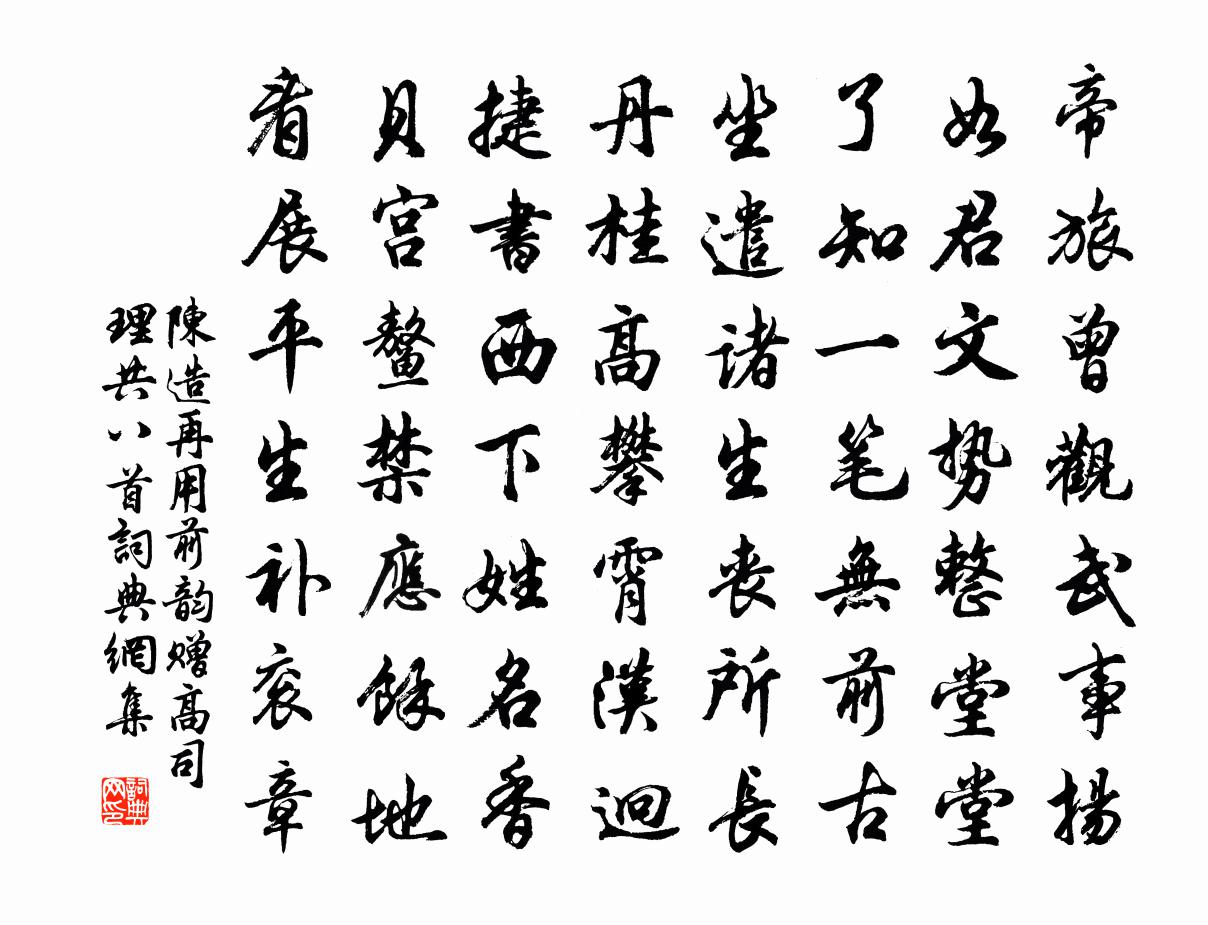 帝旅曾觀武事揚
如君文勢整堂堂
了知一笔無前古
坐遣诸生丧所長
丹桂高攀霄漢迥
捷書西下姓名香
貝宫鳌禁應餘地
看展平生补衮章
陳造再用前韵赠高司
理共八首詞典網集
詞典网印